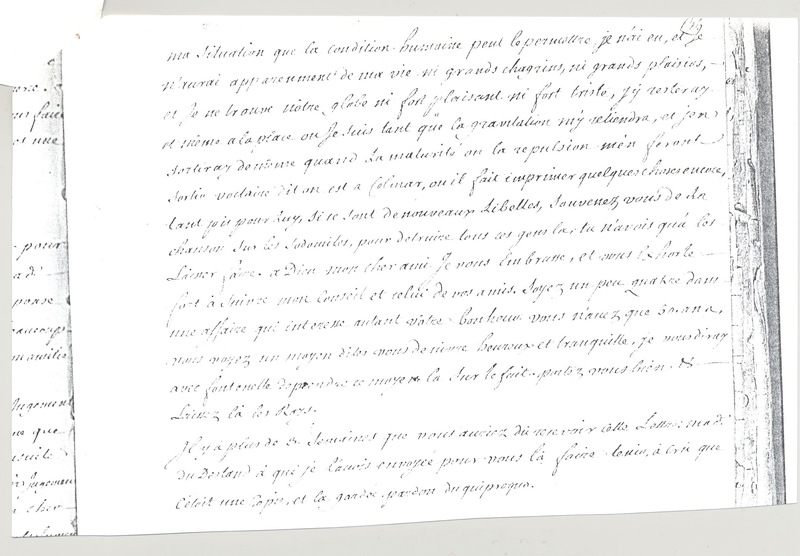 159
ma situation que la condition humaine peut le permettre, je n'ai eu, et je
n'aurai apparemment de ma vie ni grands chagrins, ni grands plaisirs,
et je ne trouve nôtre globe ni fort plaisant ni fort triste, j'y resteray
et même a la place ou je suis tant que la gravitation m'y retiendra, et j'en
sortiray de même quand la maturité ou la repulsion m'en feront
sortir voltaire dit on est a Colmar, ou il fait imprimer quelques choses encore,
tant pis pour luy, si ce sont de nouveaux Libelles, souvenez vous de la
chanson sur les sodomites, pour detruire tous ces gens la, tu n'avois qu'à les
Laisser faire. a Dieu mon cher ami je vous Embrasse, et vous Exhorte
fort à suivre mon Conseil et celui de vos amis. soyez un peu quatre dans
une affaire qui interesse autant votre bonheur vous n'avez que 50 ans,
vous voyez un moyen dites vous de vivre heureux et tranquille, je vous diray
avec fontenelle de prendre ce moyen la sur le fait. portez vous bien. &
Laissez là les Roys.
Il y a plus de 3. semaines que vous auriez dû recevoir cette Lettre; mad.e
Du Desfand à qui je l'avois envoyée pour vous la faire tenir, a crû que
c'étoit une copie, et la gardée. pardon du quiproquo.